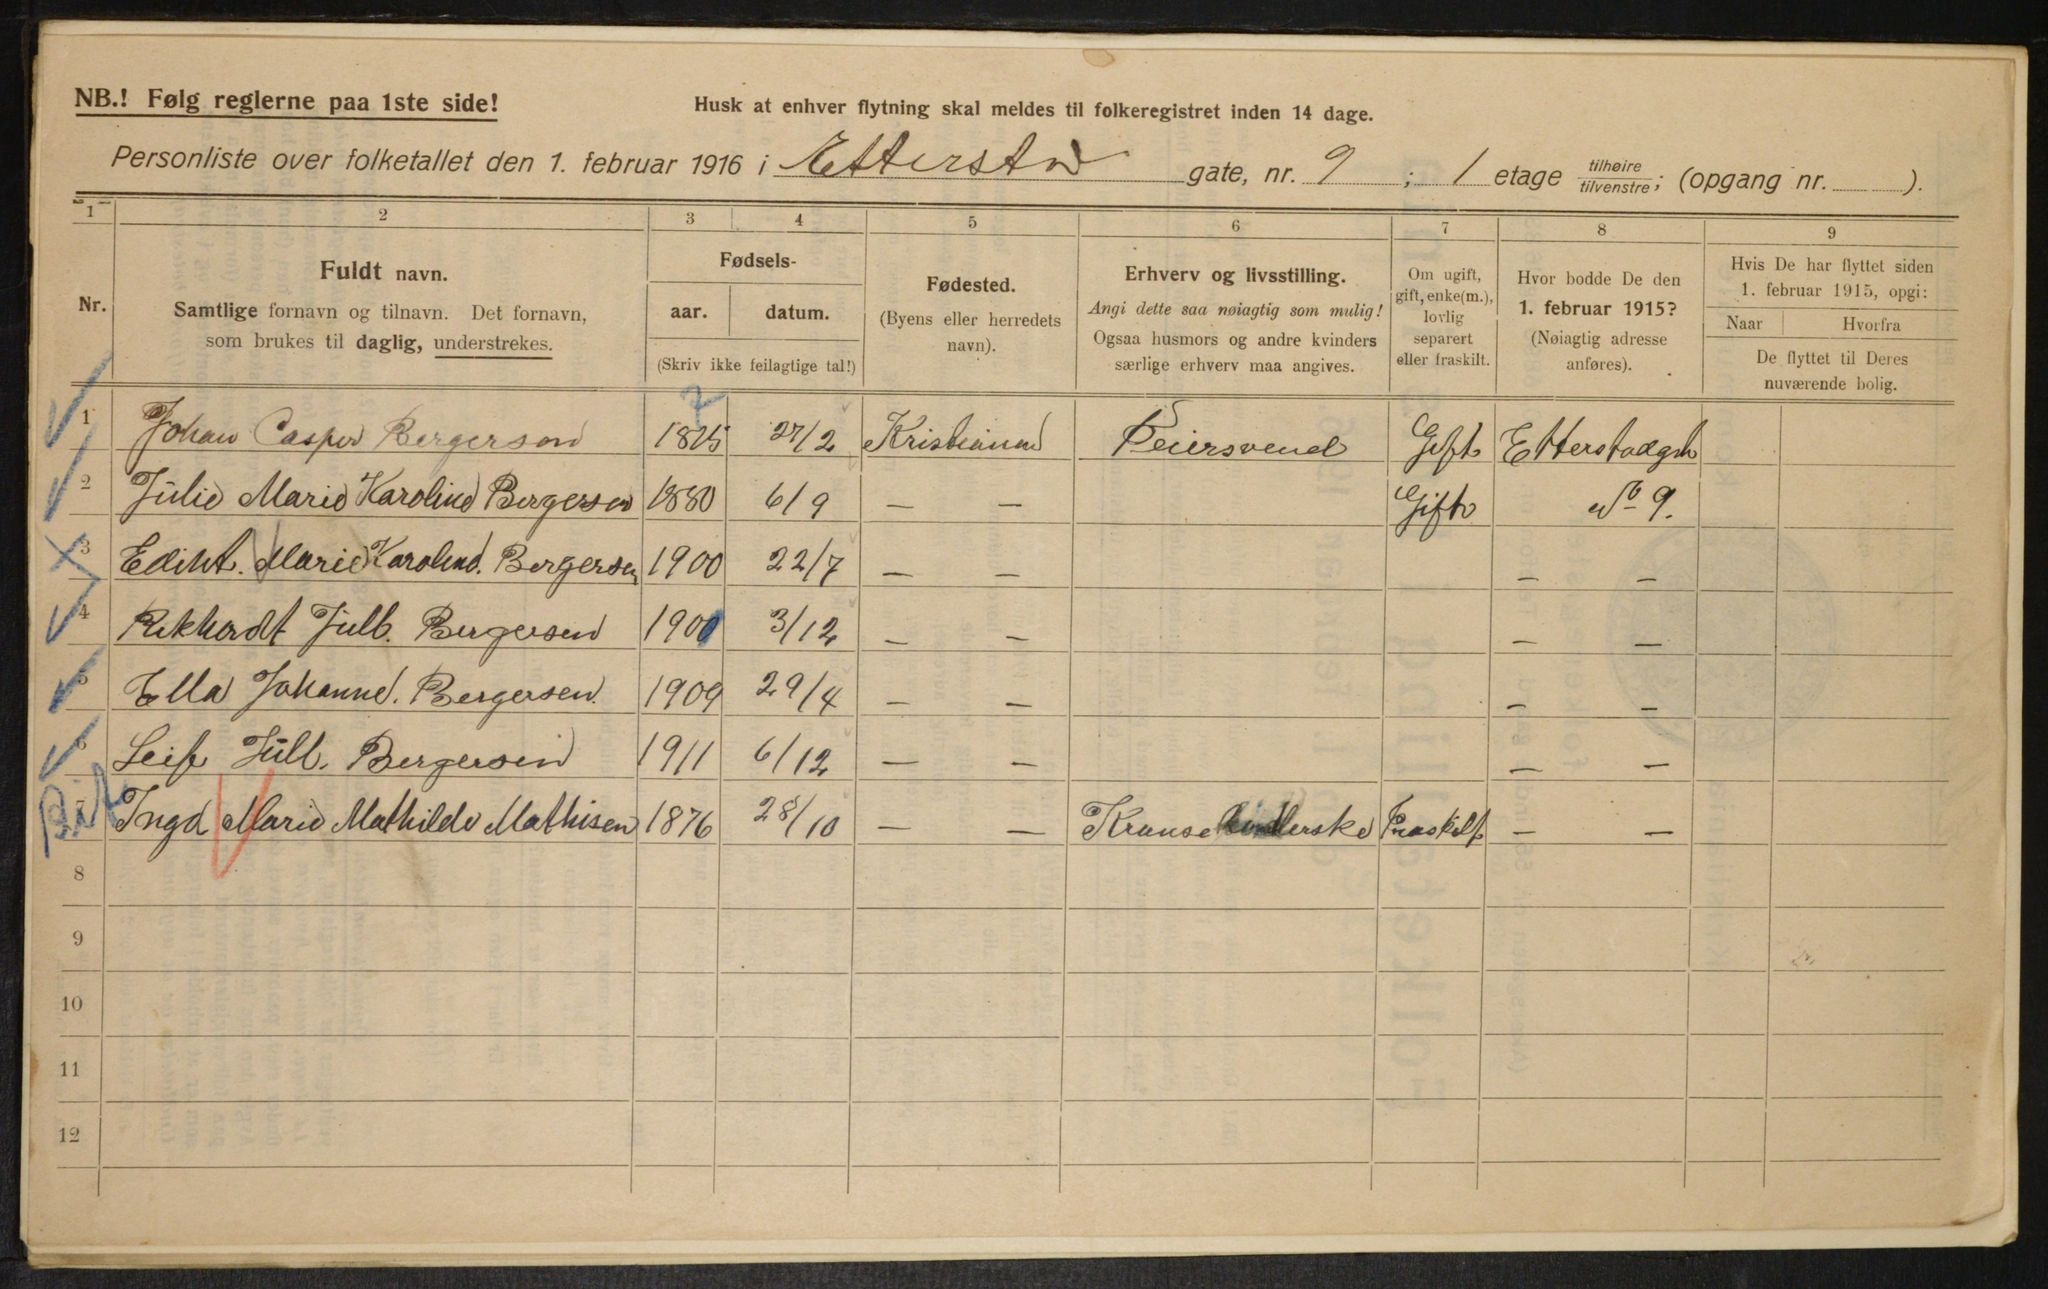 NB.! Følg reglerne paa 1ste side!
Husk at enhver flytning skal meldes til folkeregistret inden 14 dage.
Personliste over folketallet den 1. februar 1916 i Etterstad gate, nr. 9 ; 1 etage tilhøire tilvenstre; (opgang nr. ).
1 2 3 4 5 6 7 8 9
Nr.
Fuldt navn.
Samtlige fornavn og tilnavn. Det fornavn,
som brukes til daglig, understrekes.
Fødsels-
aar. datum.
(Skriv ikke feilagtige tal!)
Fødested.
(Byens eller herredets
navn).
Erhverv og livsstilling.
Angi dette saa nøiagtig som mulig!
Ogsaa husmors og andre kvinders
særlige erhverv maa angives.
Om ugift,
gift, enke(m.),
lovlig
separert
eller fraskilt.
Hvor bodde De den
1. februar 1915?
(Nøiagtig adresse
anføres).
Hvis De har flyttet siden
1. februar 1915, opgi:
Naar Hvorfra
De flyttet til Deres
nuværende bolig.
1 Johan Casper Bergerson 27/2 Kristiania Feiersvend Gift Etterstadgt
2 Julie Marie Karoline Bergersen 1880 6/9 — — Gift No 9.
3 Ediht. Marie Karoline. Bergersen 1900 22/7 — — — —
4 Rikhardt Jull. Bergersen 190 3/12 — — — —
5 Ella Johanne. Bergersen. 1909 29/4 — — — —
6 Leif Jull. Bergersen 1911 6/12 — — — —
7 Inga Marie Mathilde Mathisen 1876 28/10 — — Kransebinderske Fraskilt — —
8
9
10
11
12